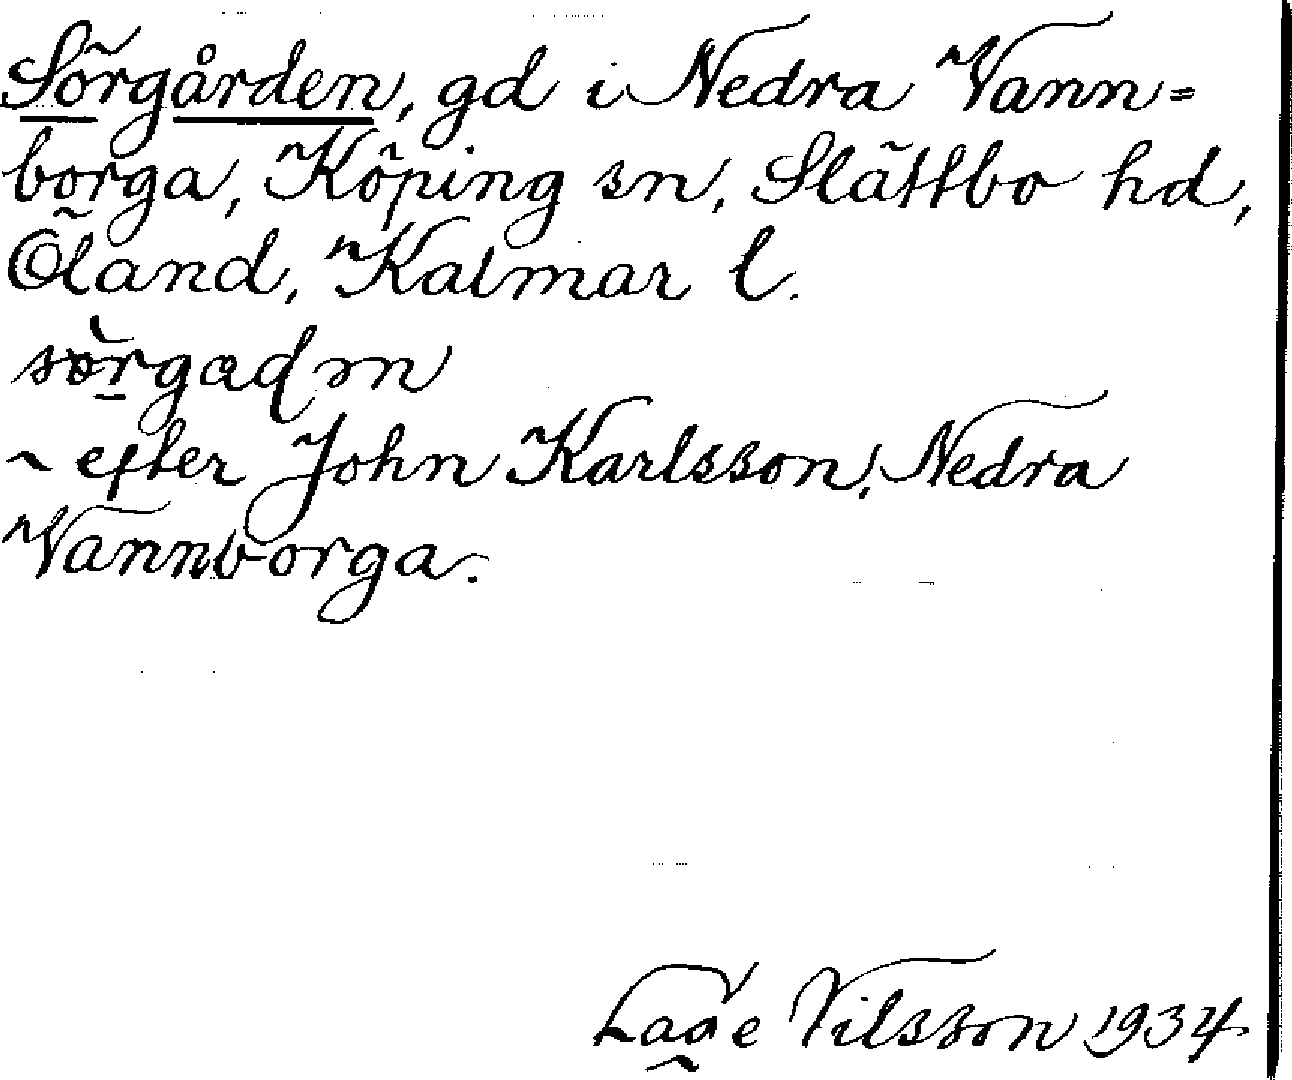 Sörgården, gd i Nedra Vann=
borga, Köping sn, Slättbo hd,
Öland, Kalmar l.
sörgaɖɳ
~ efter John Karlsson, Nedra
Vannborga.
Lage Nilsson 1934